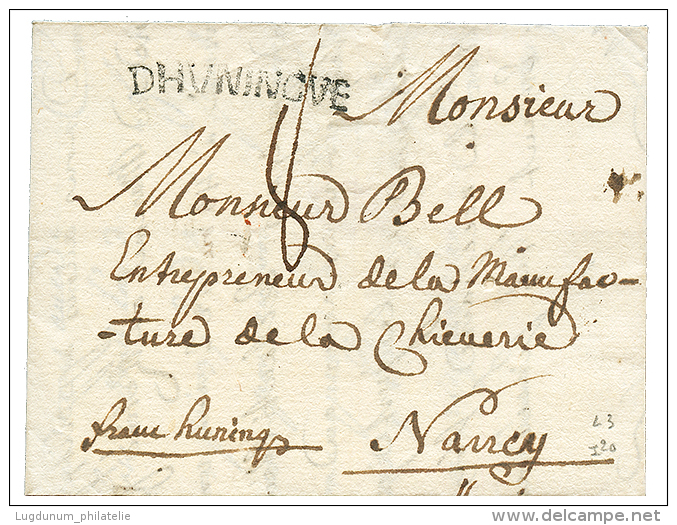 DHVNINGVE
8
Monsieur
Monsieur Bell
Entrepreneur de la Manufac-
-ture de la Chieuerie
franc hunings
Nancy
L3
I20
Lugdunum_philatelie
www.delcampe.net